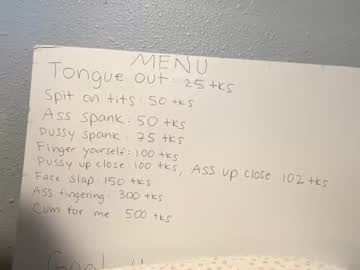 MENU
Tongue out: 25 tks
Spit on tits: 50 tks
Ass spank: 50 tks
Pussy spank: 75 tks
Finger yourself: 100 tks
Pussy up close: 100 tks, Ass up close 102 tks
Face slap: 150 tks
Ass fingering: 300 tks
Cum for me 500 tks